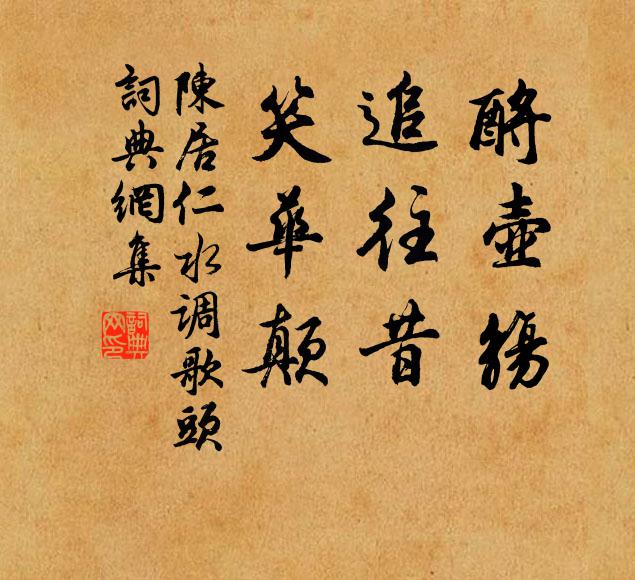 酹壺觴
追往昔
笑華顛
陳居仁水调歌頭
詞典網集
詞典
网印